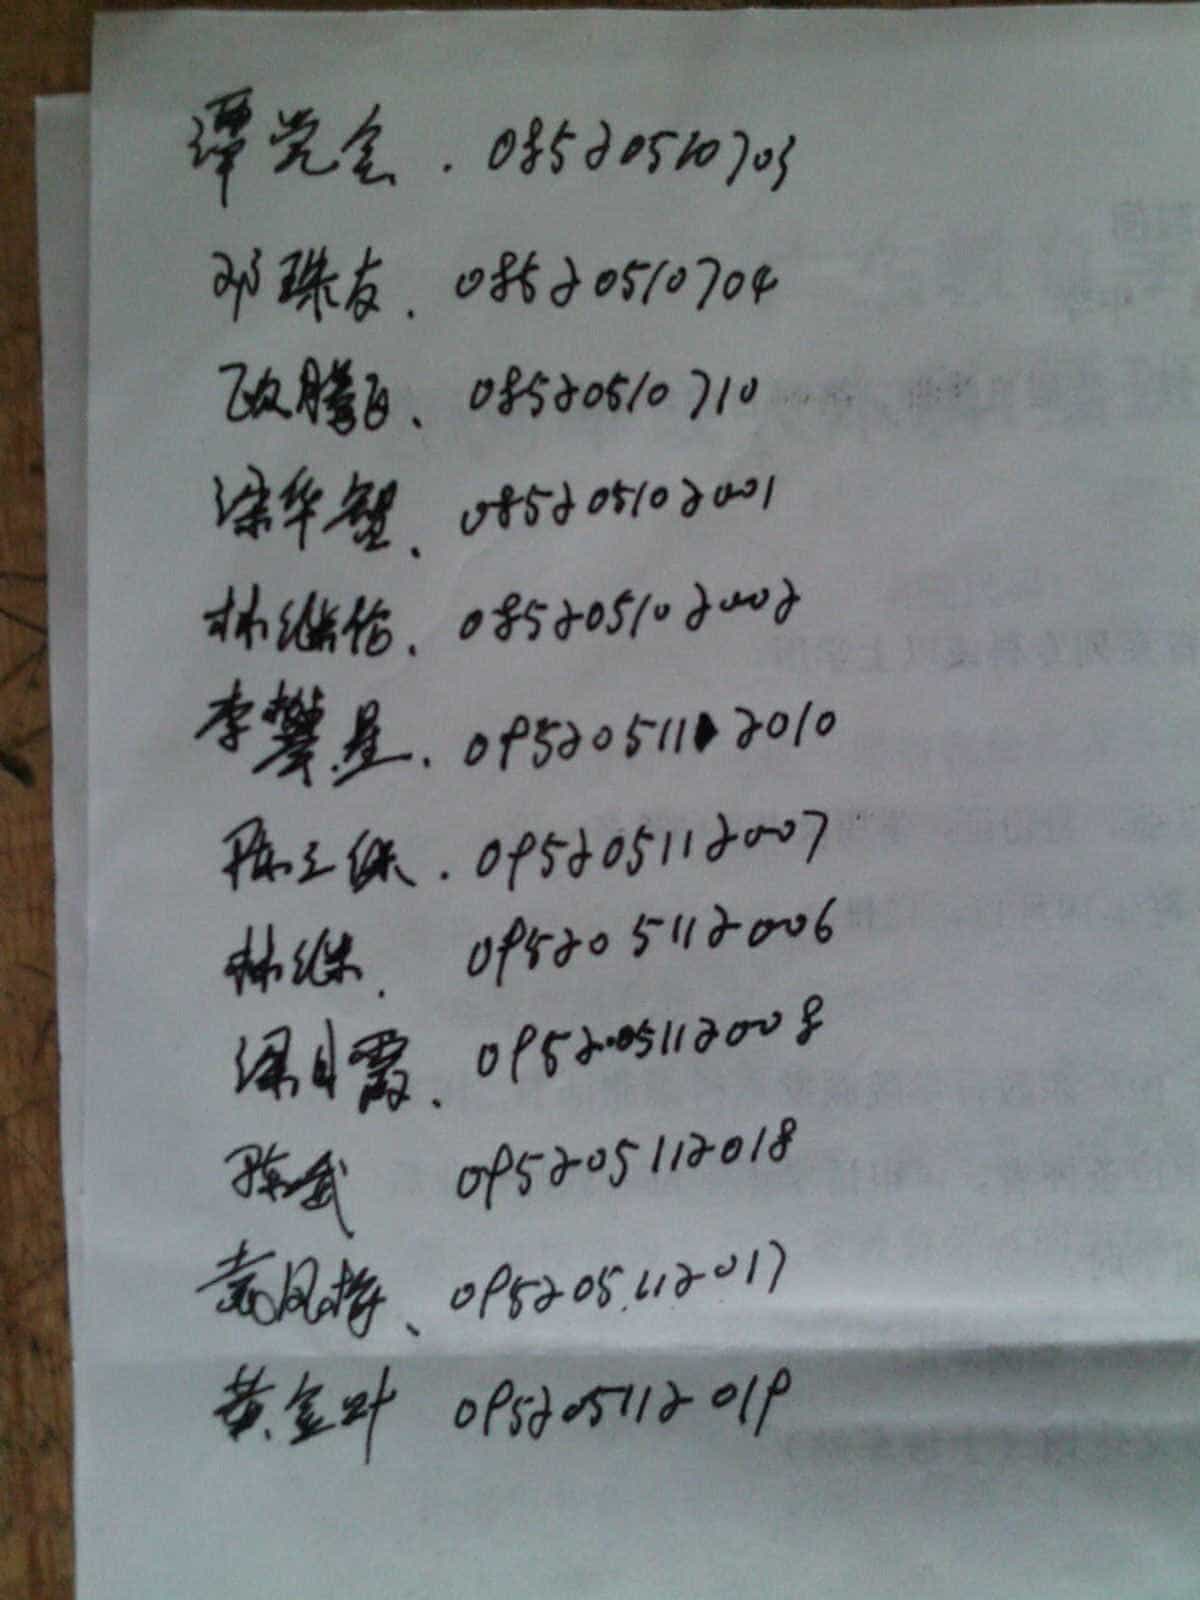 谭党会. 08520510703
邓珠友. 08520510704
欧腾飞、08520510710
梁华智、085205102001
林继佑. 085205102002
李攀星. 095205112010
陈三保. 095205112007
林继 . 095205112006
梁月霞、095205112008
陈武 095205112018
袁凤梅、095205112017
黄金叶 095205112019